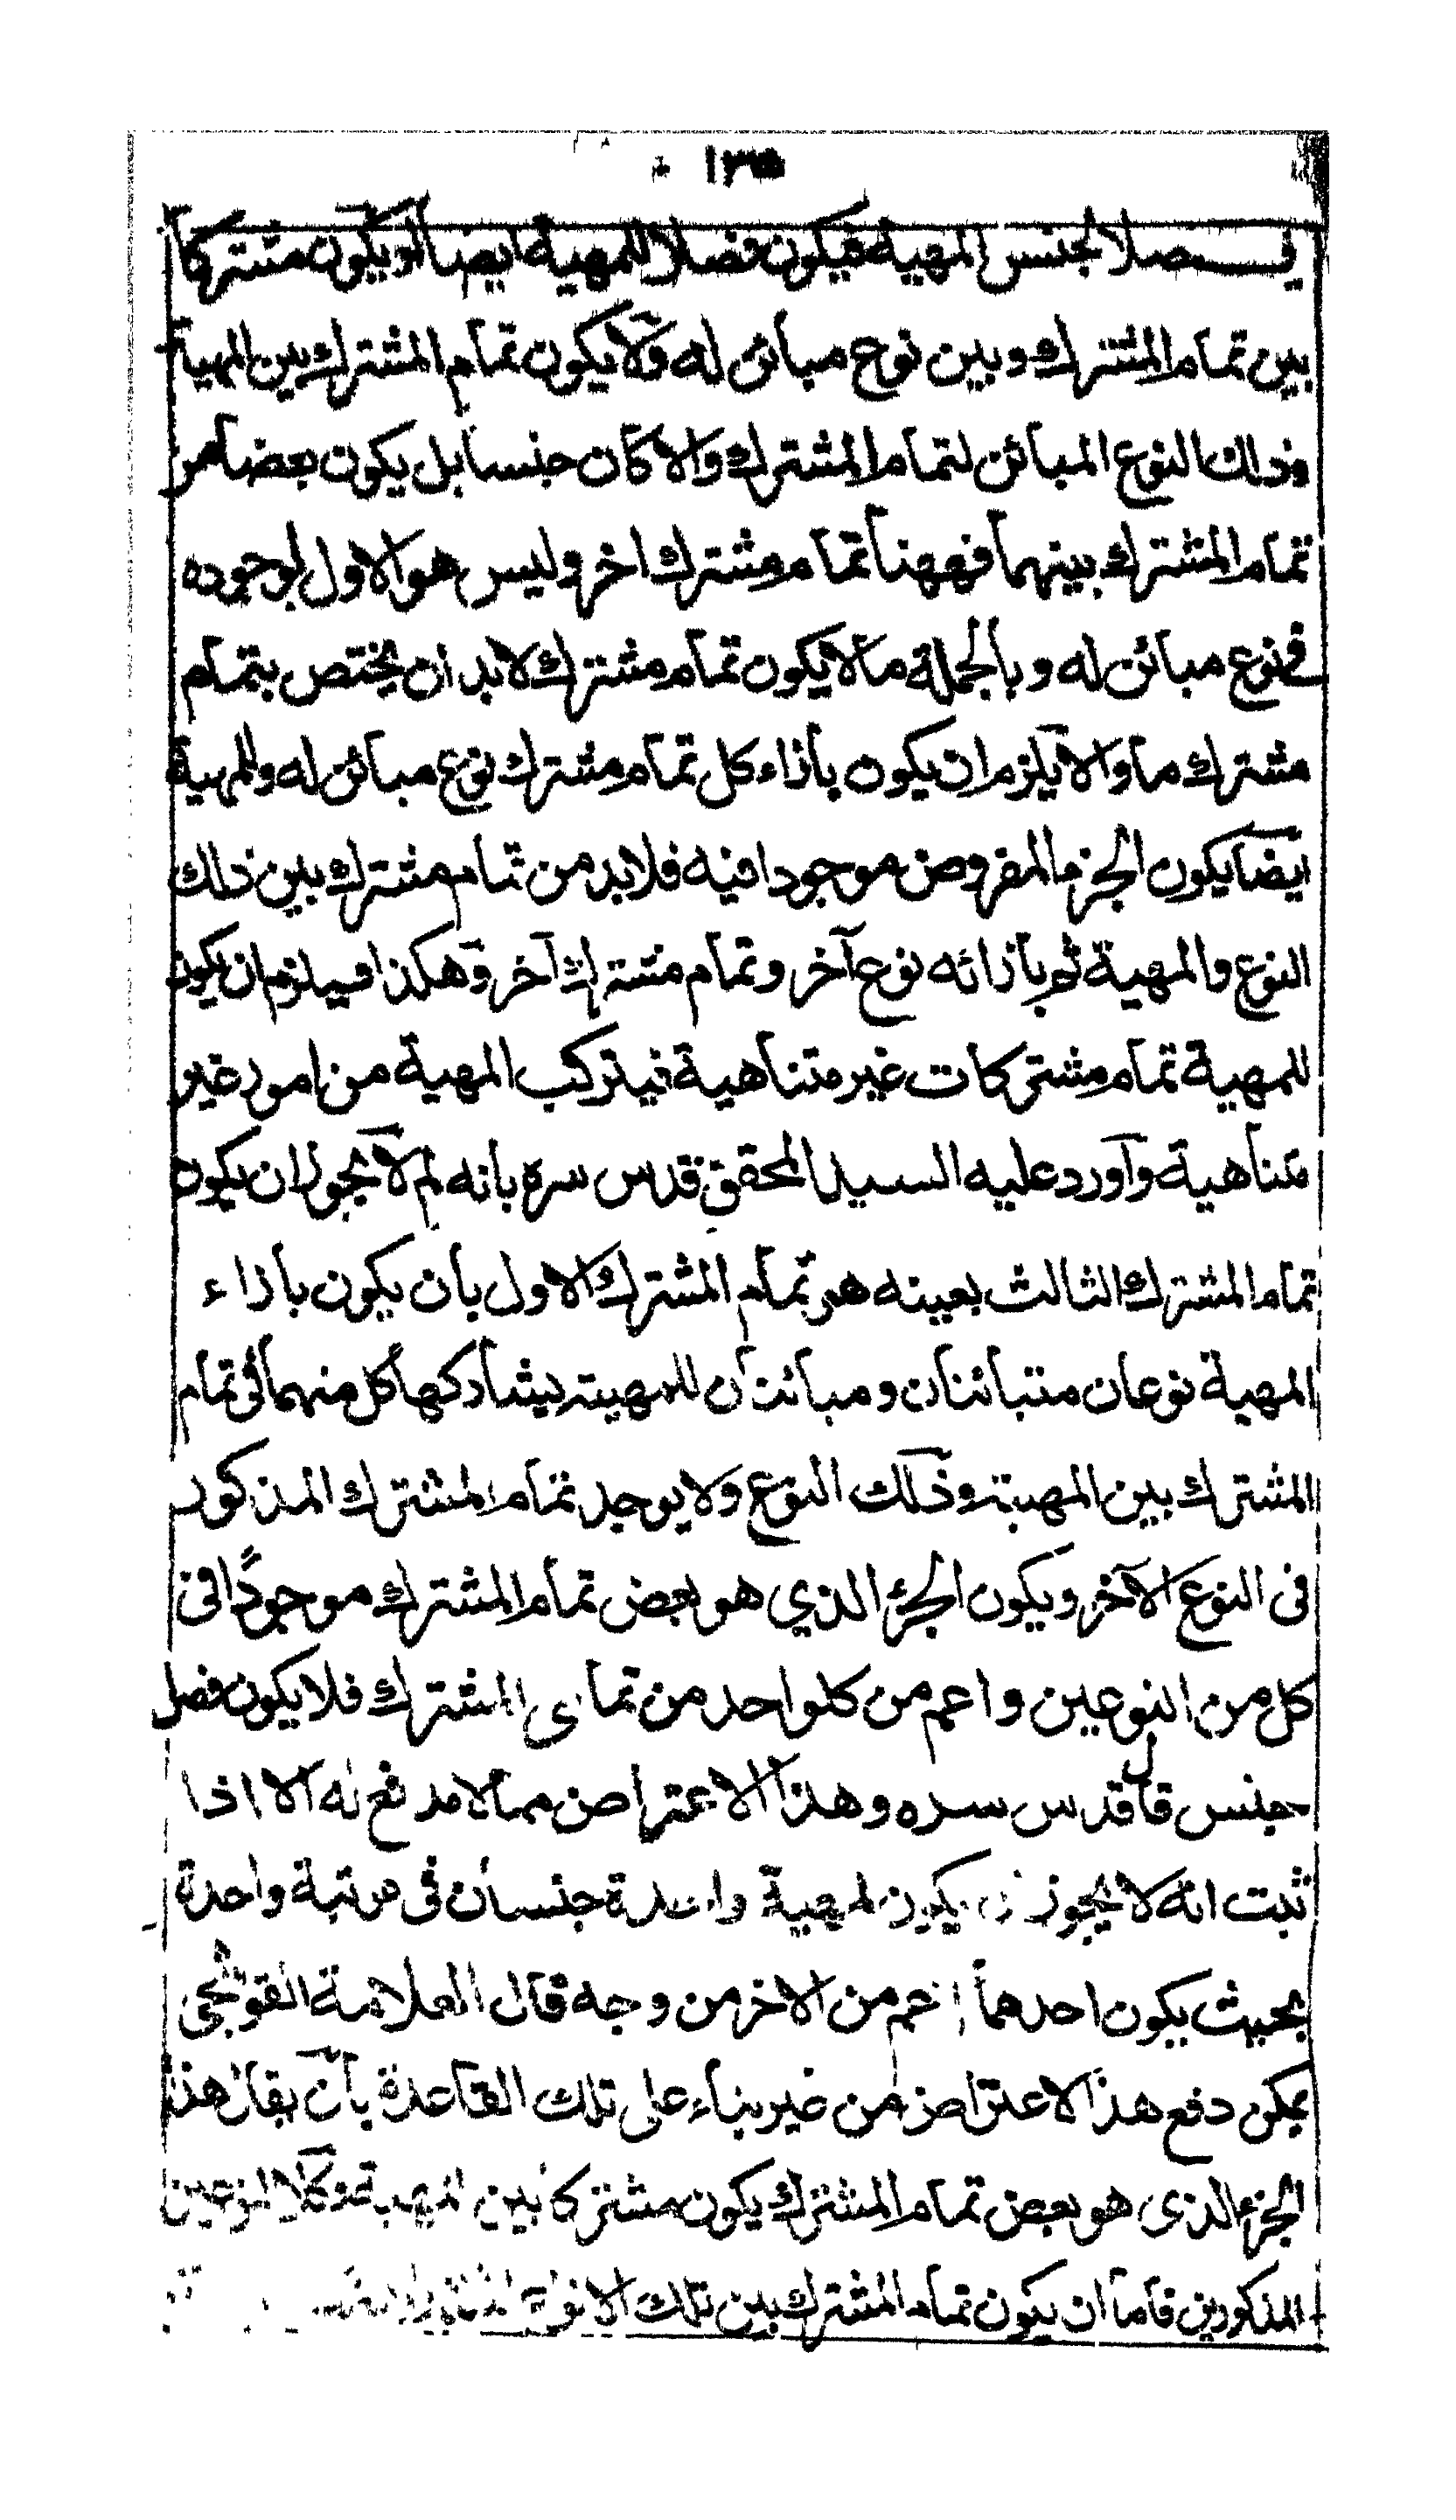 ١٣٥
فصلا لجنس المهية فيكون فصلا للمهية ايضا او يكون مشتركا
بين تمام المشترك وبين نوع مبائن له ولا يكون تمام المشترك بين المهية
وذلك النوع المبائن لتمام المشترك والا كان جنسا بل يكون بعضا من
تمام المشترك بينهما فههنا تمام مشترك اخر وليس هو الاول لوجوده
فى نوع مبائن له وبالجملة ما لا يكون تمام مشترك لا بد ان يختص بتمام
مشترك ما والا يلزم ان يكون بازاء كل تمام مشترك نوع مبائن له وللمهية
ايضا يكون الجزء المفروض موجودا فيه فلا بد من تمام مشترك بين ذلك
النوع والمهية ثم بازائه نوع آخر وتمام مشترك آخر وهكذا فيلزم ان يكون
للمهية تمام مشتركات غير متناهية فيتركب المهية من امور غير
متناهية وآورد عليه السيد المحقق قدس سره بانه لم لا يجوز ان يكون
تمام المشترك الثالث بعينه هو تمام المشترك الاول بان يكون بازاء
المهية نوعان متبائنان ومبائنان للمهية يشاركها كل منهما فى تمام
المشترك بين المهية وذلك النوع ولا يوجد تمام المشترك المذكور
فى النوع الآخر ويكون الجزء الذي هو بعض تمام المشترك موجودًا فى
كل من النوعين واعم من كلواحد من تمامى المشترك فلا يكون فصل
جنس قال قدس سره وهذا الاعتراض مما لا مدفع له الا اذا
ثبت انه لا يجوز ان يكون لمهية واحدة جنسان فى مرتبة واحدة
بحيث يكون احدهما اعم من الاخر من وجه قال العلامة القوشجى
يمكن دفع هذا الاعتراض من غير بناء على تلك القاعدة بان يقال هذا
الجزء الذى هو بعض تمام المشترك يكون مشتركا بين المهية وكلا النوعين
المذكورين فاما ان يكون تمام المشترك بين تلك الانواع